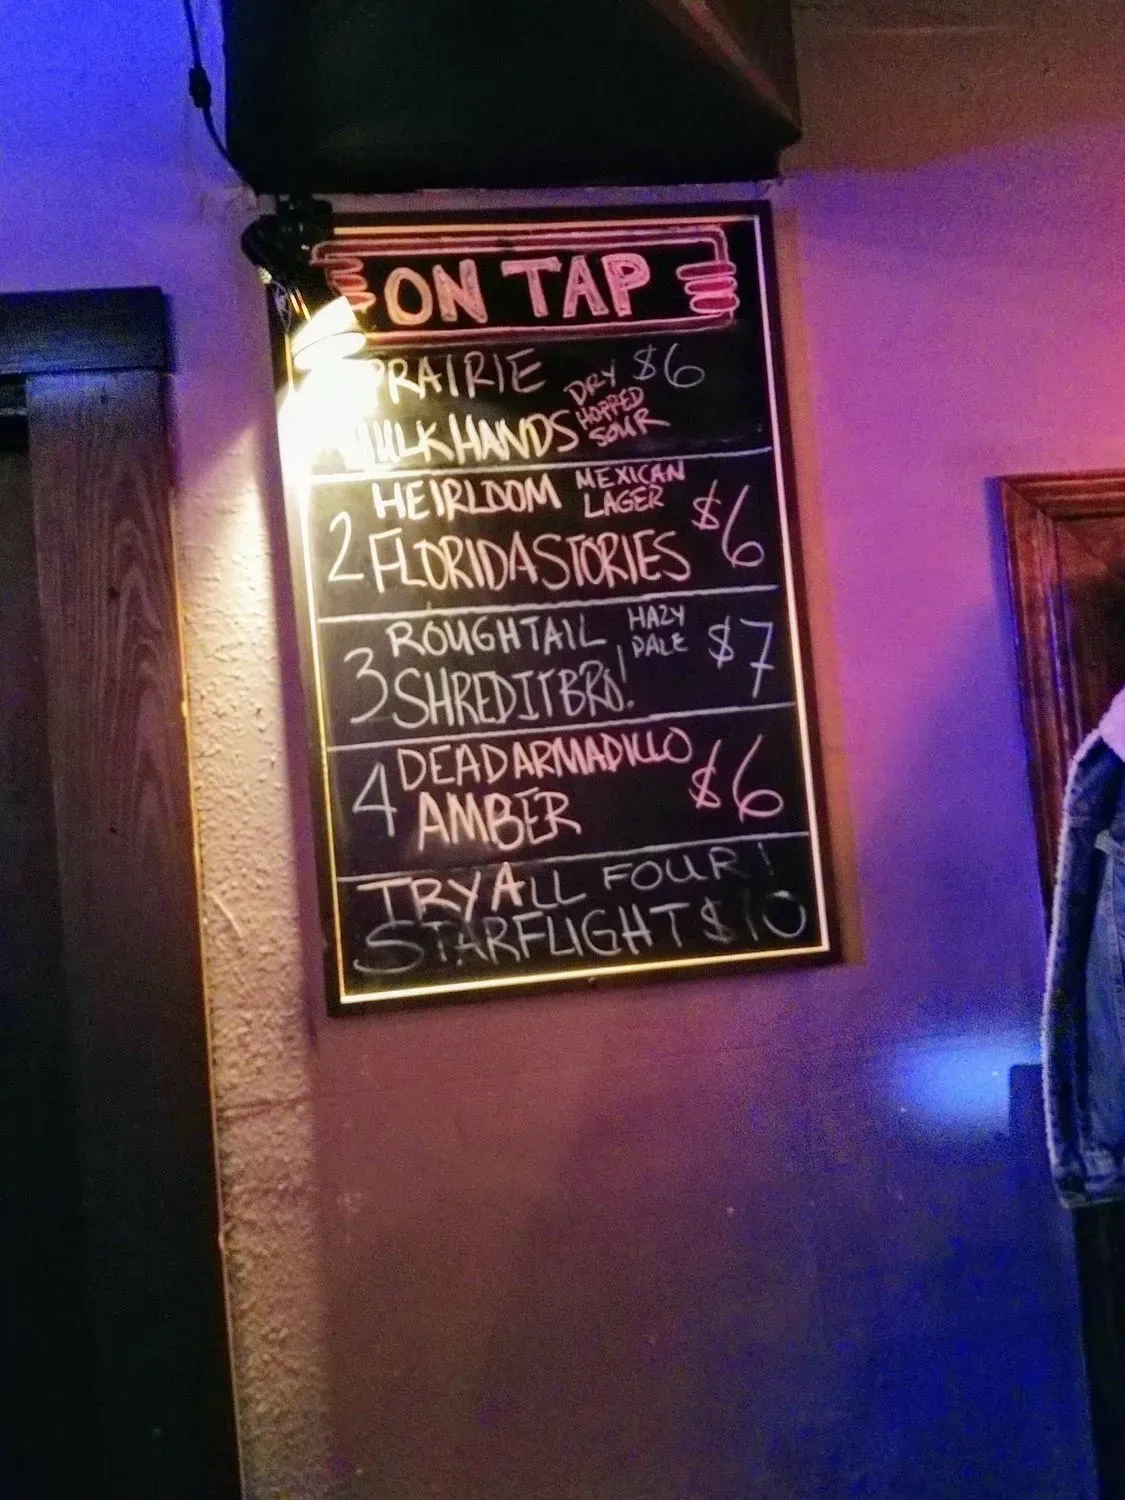 ON TAP
PRAIRIE $6
DRY HOPPED SOUR
HANDS
HEIRLOOM MEXICAN LAGER $6
2 FLORIDA STORIES
ROUGHTAIL HAZY PALE $7
3 SHREDITBRO!
DEAD ARMADILLO $6
4 AMBER
TRY ALL FOUR!
STARFLIGHT $10